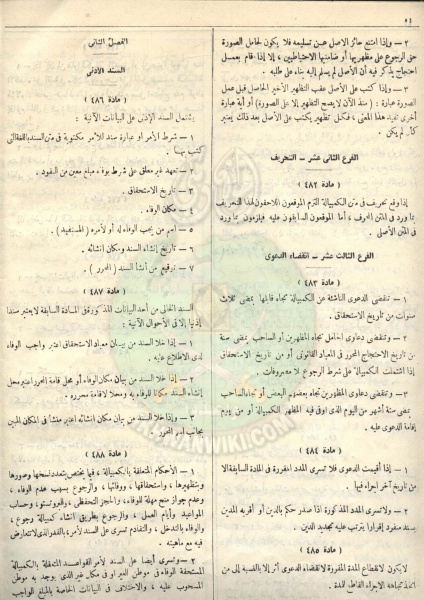 ٥٤
٢ — وإذا امتنع حائز الأصل عن تسليمه فلا يكون لحامل الصورة
حق الرجوع على مظهريها أو ضامنيها الاحتياطيين ، إلا إذا قام بعمل
احتجاج يذكر فيه أن الأصل لم يسلم إليه بناء على طلبه .
٣ — وإذا كتب على الأصل عقب التظهير الأخير الحاصل قبل عمل
الصورة عبارة : (منذ الآن لا يصح التظهير إلا على الصورة) أو أية عبارة
أخرى تفيد هذا المعنى ، فكل تظهير يكتب على الأصل بعد ذلك يعتبر
كأن لم يكن .
الفرع الثانى عشر — التحريف
( مادة ٤٨٢ )
إذا وقع تحريف فى متن الكمبيالة التزم الموقعون اللاحقون لهذا التحريف
بما ورد فى المتن المحرف ، أما الموقعون السابقون عليه فيلزمون بما ورد
فى المتن الأصلى .
الفرع الثالث عشر — انقضاء الدعوى
( مادة ٤٨٣ )
١ — تنقضى الدعوى الناشئة عن الكمبيالة تجاه قابلها بمضى ثلاث
سنوات من تاريخ الاستحقاق .
٢ — وتنقضى دعاوى الحامل تجاه المظهرين أو الساحب بمضى سنة
من تاريخ الاحتجاج المحرر فى الميعاد القانونى أو من تاريخ الاستحقاق
إذا اشتملت الكمبيالة على شرط الرجوع بلا مصروفات .
٣ — وتنقضى دعاوى المظهرين تجاه بعضهم البعض أو تجاه الساحب
بمضى ستة أشهر من اليوم الذى أوفى فيه المظهر الكمبيالة أو من يوم
إقامة الدعوى عليه .
( مادة ٤٨٤ )
١ — إذا أقيمت الدعوى فلا تسرى المدد المقررة فى المادة السابقة إلا
من تاريخ آخر إجراء فيها .
٢ — ولا تسرى المدد المذكورة إذا صدر حكم بالدين أو أقر به المدين
بسند منفرد إقرارا يترتب عليه تجديد الدين .
( مادة ٤٨٥ )
لا يكون لانقطاع المدة المقررة لانقضاء الدعوى أثر إلا بالنسبة إلى من
اتخذ تجاهه الإجراء القاطع للمدة .
الفصل الثانى
السند الإذنى
( مادة ٤٨٦ )
يشتمل السند الإذنى على البيانات الآتية :
١ — شرط الأمر أو عبارة سند للأمر مكتوبة فى متن السند باللغة التى
كتب بها .
٢ — تعهد غير معلق على شرط بوفاء مبلغ معين من النقود .
٣ — تاريخ الاستحقاق .
٤ — مكان الوفاء .
٥ — اسم من يجب الوفاء له أو لأمره ( المستفيد ) .
٦ — تاريخ إنشاء السند ومكان إنشائه .
٧ — توقيع من أنشأ السند ( المحرر ) .
( مادة ٤٨٧ )
السند الخالى من أحد البيانات المذكورة فى المادة السابقة لا يعتبر سندا
إذنيا إلا فى الأحوال الآتية :
١ — إذا خلا السند من بيان ميعاد الاستحقاق اعتبر واجب الوفاء
لدى الاطلاع عليه .
٢ — إذا خلا السند من بيان مكان الوفاء أو محل إقامة المحرر اعتبر محل
إنشاء السند مكانا للوفاء به ومحلا لإقامة محرره .
٣ — وإذا خلا السند من بيان مكان إنشائه اعتبر منشأ فى المكان المبين
بجانب اسم المحرر .
( مادة ٤٨٨ )
١ — الأحكام المتعلقة بالكمبيالة ، فيما يختص بتعدد نسخها وصورها
وتظهيرها ، واستحقاقها ، ووفائها ، والرجوع بسبب عدم الوفاء ،
وعدم جواز منح مهلة للوفاء ، والحجز التحفظى ، والبروتستو ، وحساب
المواعيد وأيام العمل ، والرجوع بطريق إنشاء كمبيالة رجوع ،
والوفاء بالتدخل ، والتقادم تسرى على السند لأمر ، بالقدر الذى لا تتعارض
فيه مع ماهيته .
٢ — وتسرى أيضا على السند لأمر القواعد المتعلقة بالكمبيالة
المستحقة الوفاء فى موطن الغير أو فى مكان غير الذى يوجد به موطن
المسحوب عليه ، والاختلاف فى البيانات الخاصة بالمبلغ الواجب
OMANWIKI.COM